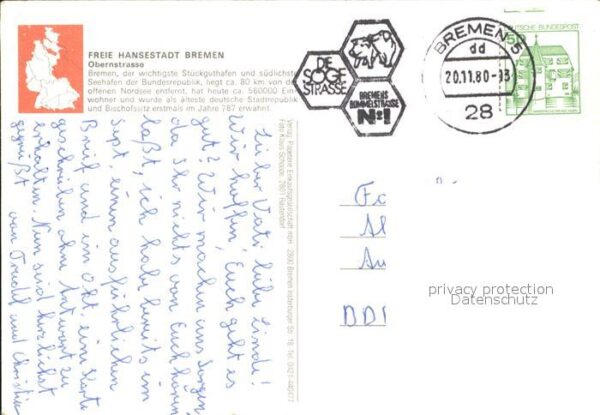 FREIE HANSESTADT BREMEN
Obernstrasse
Bremen, der wichtigste Stückguthafen und südlichste
Seehafen der Bundesrepublik, liegt ca. 80 km von der
offenen Nordsee entfernt, hat heute ca. 560000 Ein-
wohner und wurde als älteste deutsche Stadtrepublik
und Bischofssitz erstmals im Jahre 787 erwähnt.
DIE
SÖGE
STRASSE
BREMENS
BUMMELSTRASSE
No 1
BREMEN 5
dd
20.11.80-93
28
DEUTSCHE BUNDESPOST
50
Lieber Vati, liebe Linde!
Wir hoffen, Euch geht es
gut? Wir machen uns Sorgen,
da Ihr nichts von Euch hören
laßt, ich habe bereits im
Sept. einen ausführlichen
Brief und im Okt. eine Karte
geschrieben ohne Antwort zu
erhalten. Nun seid herzlichst
gegrüßt von Traudl und Christian
Verlag: Papeterie Einkaufsgesellschaft mbH · 2800 Bremen
Foto: Klaus Schädel, 2801
Fc
Al
Au
BDI
privacy protection
Datenschutz